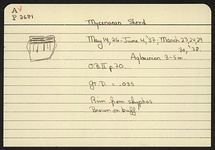 A
P 2681
Mycenaean Sherd
May 14, 26 - June 4, '37; March 23, 24, 29
30, '38.
3-5m
O.B II p. 70.
gr. D. = .035
Rim from skyphos
Brown on buff